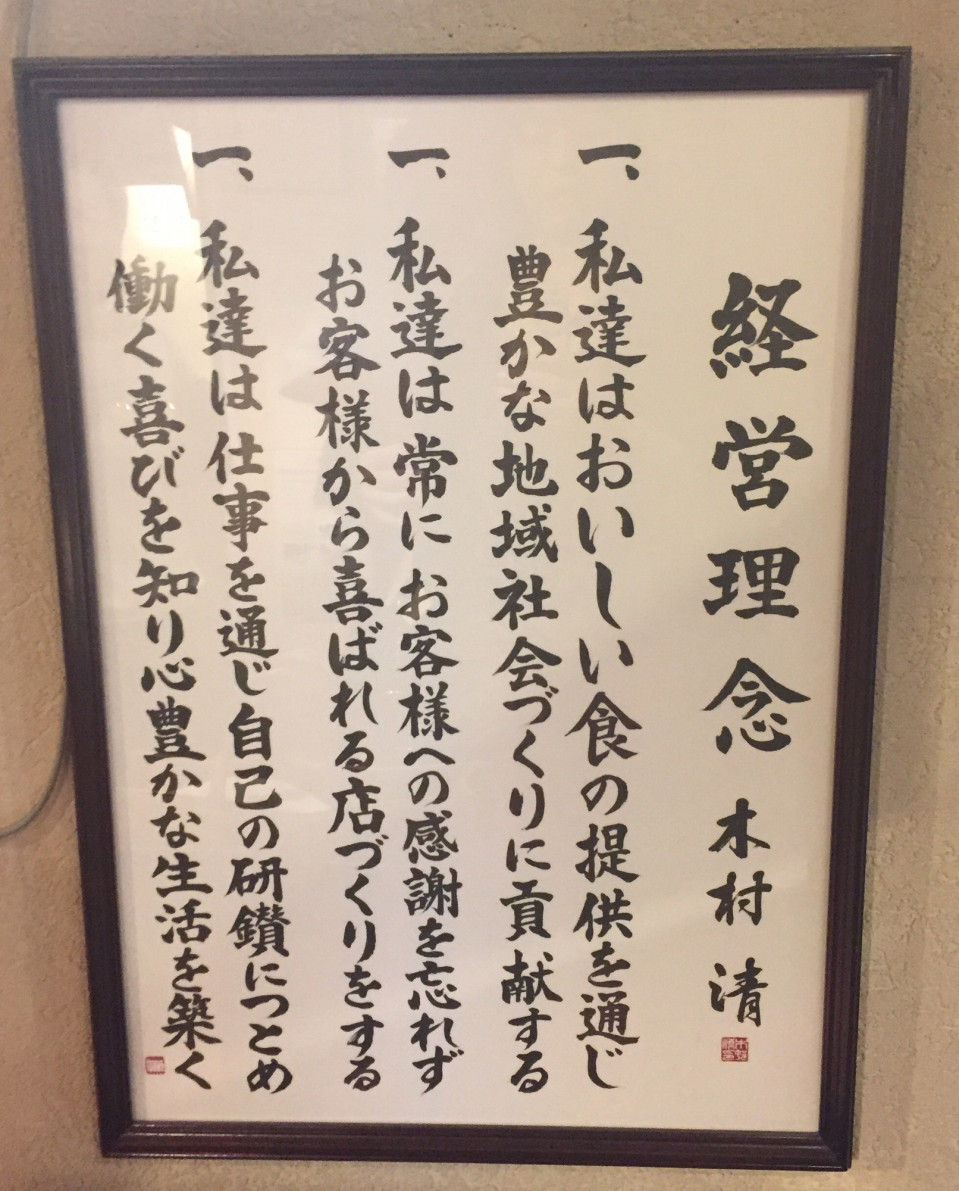 経営理念 木村 清
一、私達はおいしい食の提供を通じ
豊かな地域社会づくりに貢献する
一、私達は常にお客様への感謝を忘れず
お客様から喜ばれる店づくりをする
一、私達は仕事を通じ自己の研鑽につとめ
働く喜びを知り心豊かな生活を築く